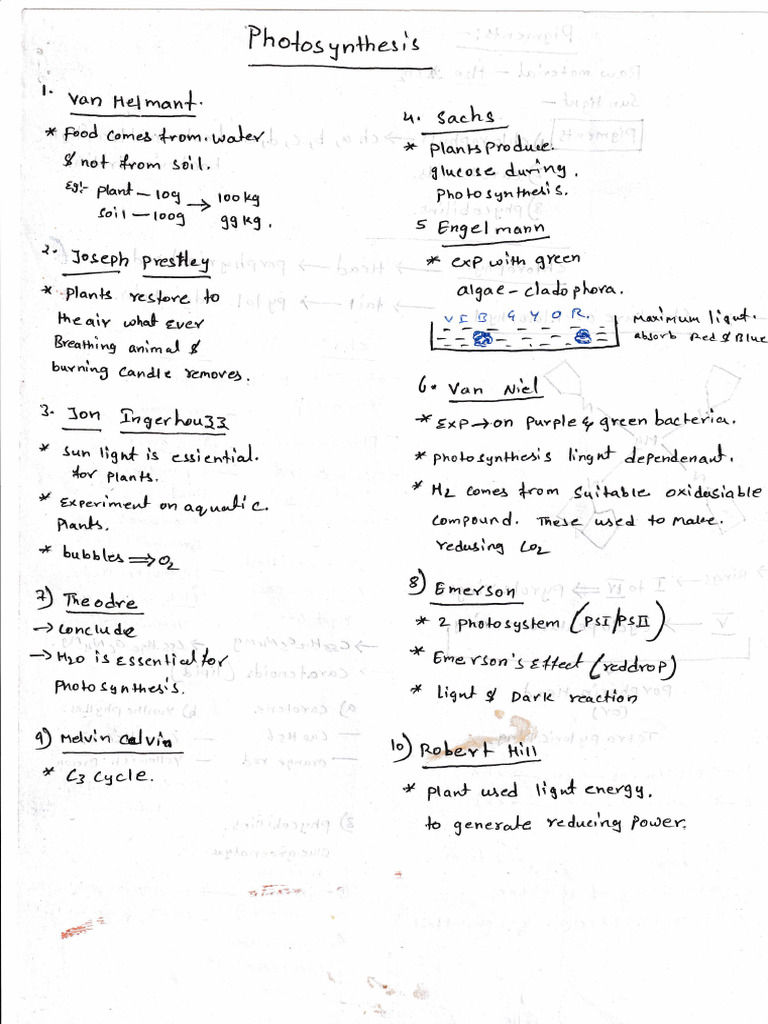 Photosynthesis
1. Van Helmant.
* Food comes from water
& not from soil.
Eg:- plant — 10g → 100kg
soil — 100g 99kg.
2. Joseph Prestley
* Plants restore to
the air what ever
Breathing animal &
burning candle removes.
3. Jon Ingerhouzz
* Sun light is essiential.
for plants.
* Experiment on aquatic.
Plants.
* bubbles ⟹ O2
7) Theodre
→ Conclude
→ H2O is Essential for
Photosynthesis.
9) Melvin Calvin
* C3 Cycle.
4. Sachs
* Plants Produce.
glucose during.
Photosynthesis.
5 Engelmann
* exp with green
algae - cladophora.
V I B G Y O R.
Maximum light.
absorb Red & Blue
6. Van Niel
* Exp → on Purple & green bacteria.
* photosynthesis lingnt dependenant.
* H2 comes from suitable oxidasiable
compound. These used to make.
redusing CO2
8) Emerson
* 2 photosystem (PSI/PSII)
* Emerson's Effect (reddrop)
* Light & Dark reaction
10) Robert Hill
* plant used light energy.
to generate reducing Power.